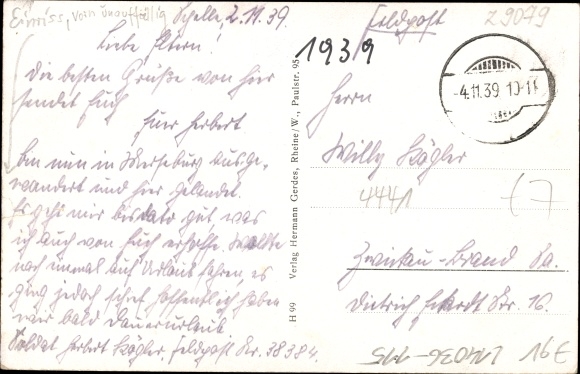 Einriss, vorn unauffällig
Schelle, 2.11.39.
Liebe Eltern!
Die besten Grüße von hier
sendet Euch
Euer Herbert
Bin nun in Merseburg ausge-
wandert und hier gelandet.
Es geht mir bisdato gut was
ich auch von Euch erhoffe. Wollte
noch einmal auf Urlaub fahren, es
ging jedoch schief hoffentlich haben
wir bald Dauerurlaub
Soldat Herbert Kögler, Feldpost Nr. 38384.
H 99 Verlag Hermann Gerdes, Rheine/W., Paulstr. 95
Feldpost
Z9079
1939
-4.11.39 10-11
Herrn
Willy Kögler
4441
Zwickau-Brand Sa.
Dietrich Eckardt Str. 16.
16E